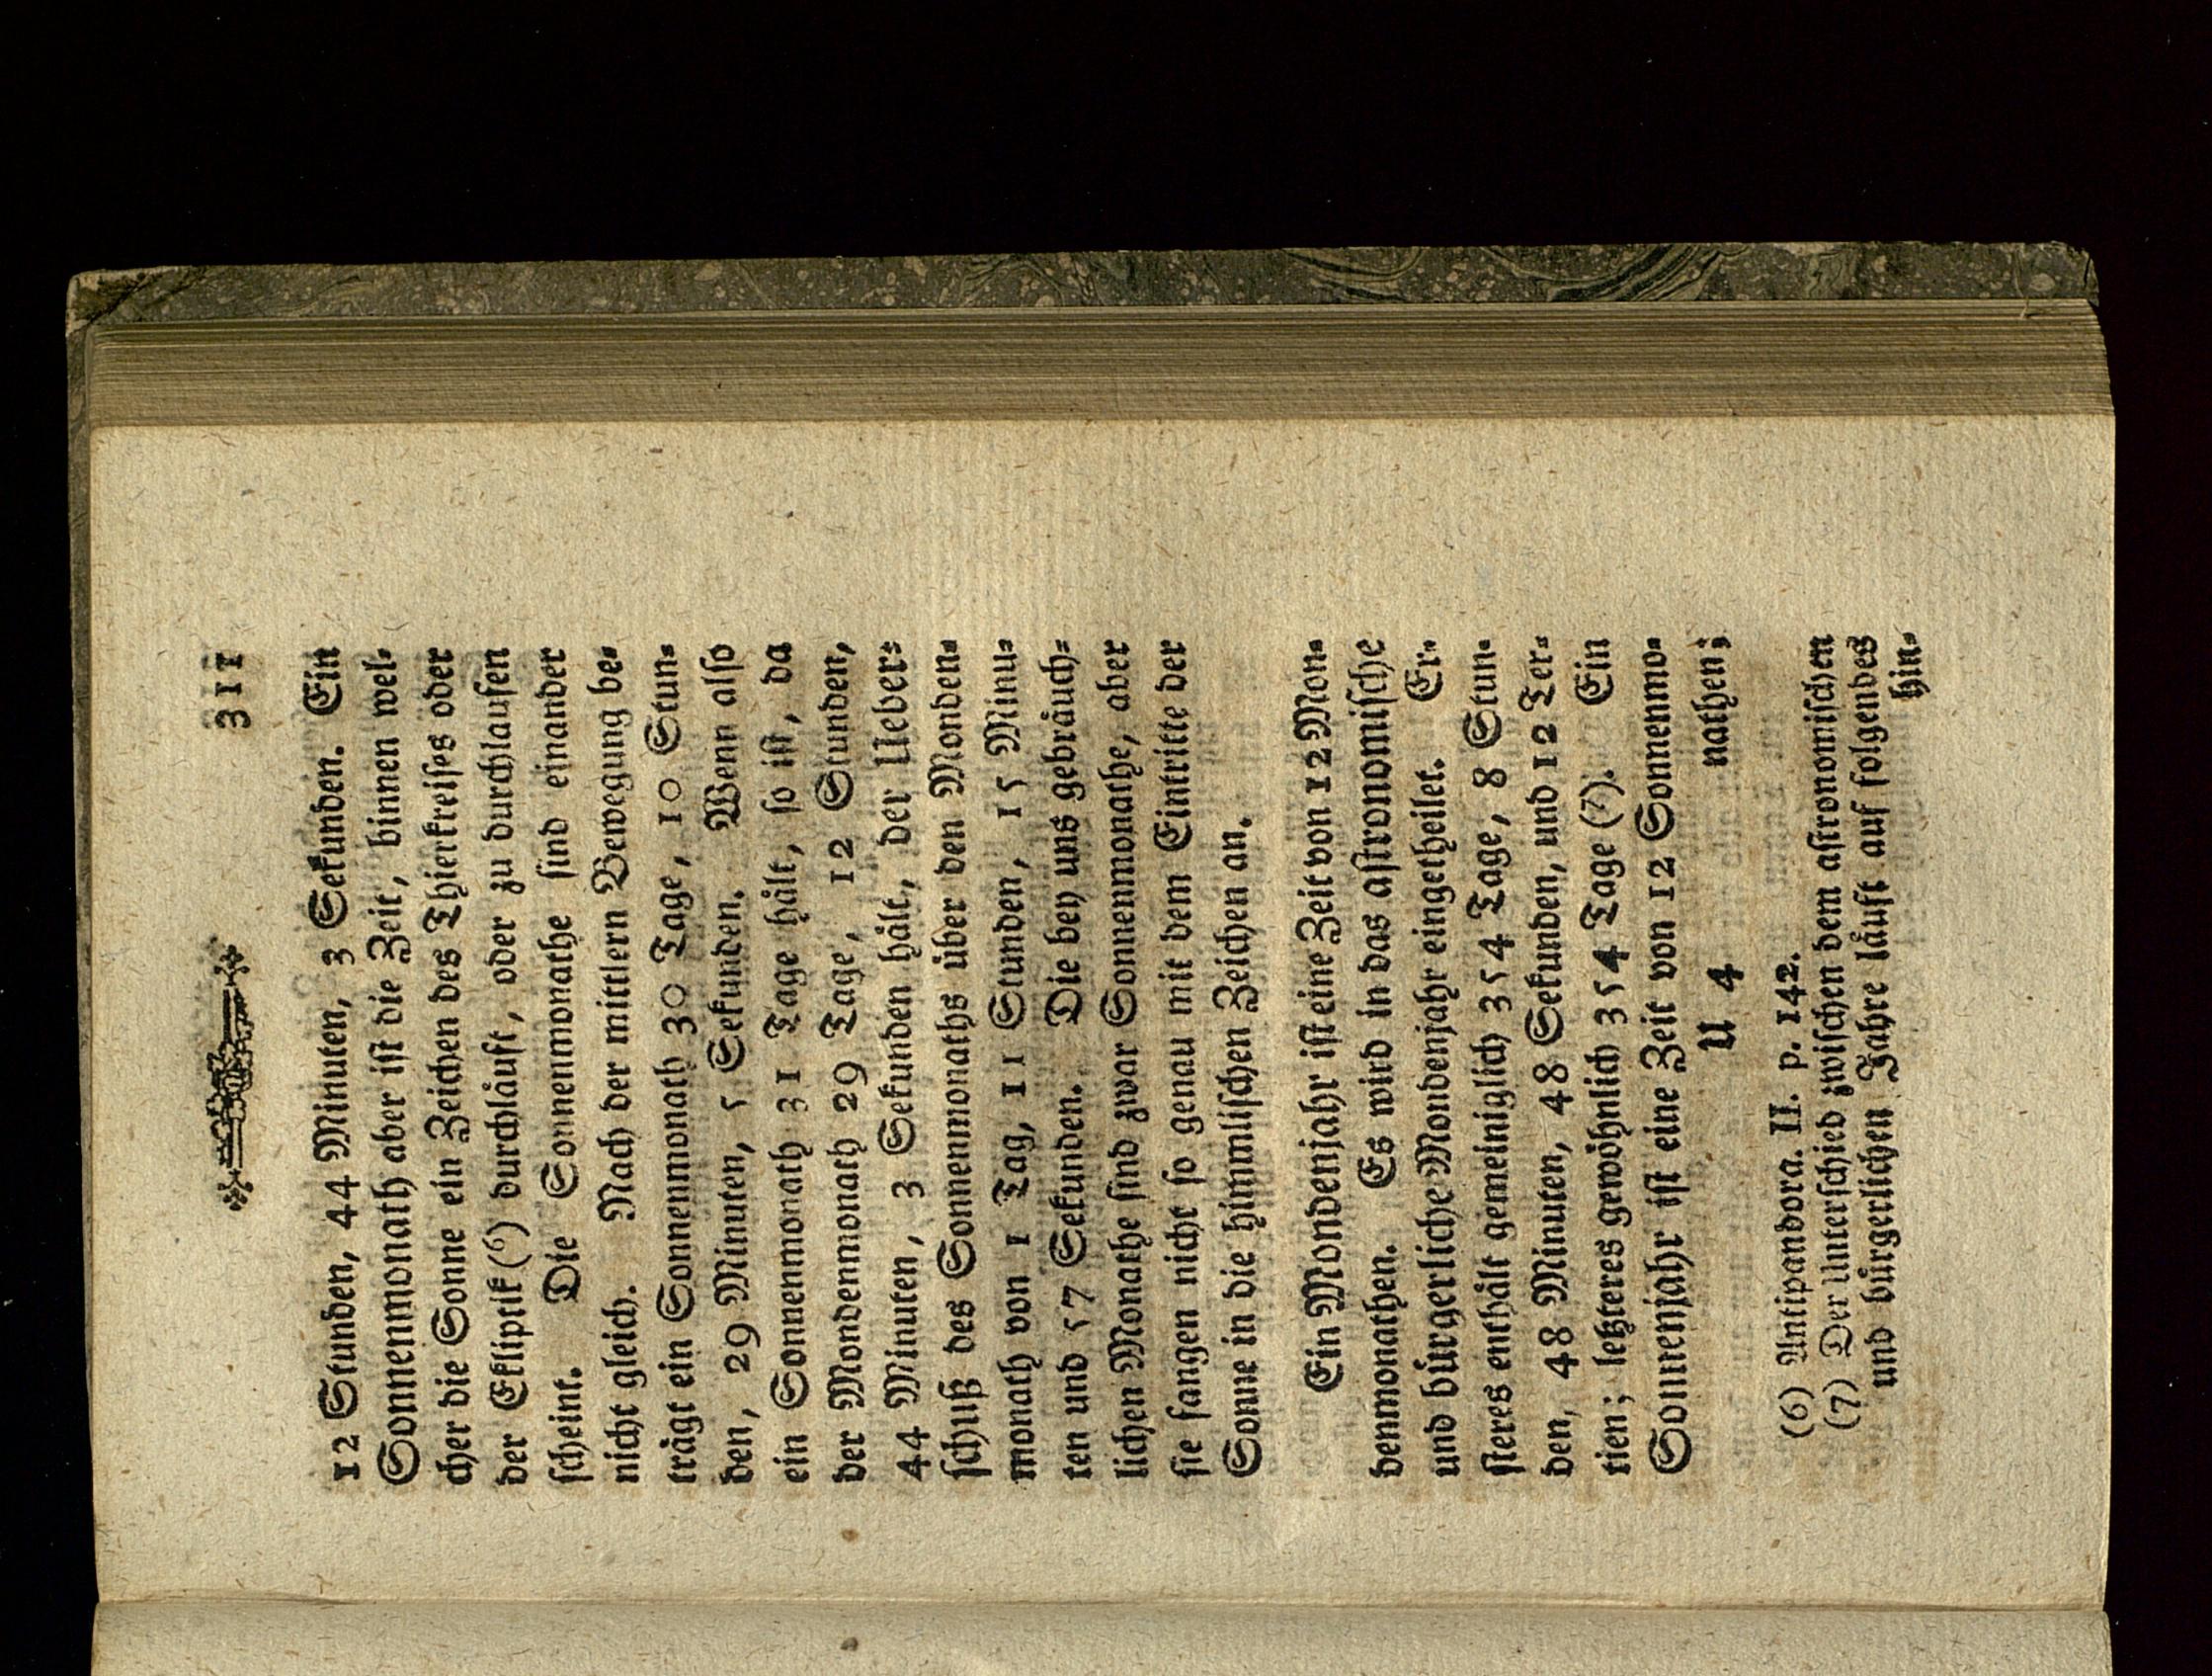 311
12 Stunden, 44 Minuten, 3 Sekunden. Ein
Sonnenmonath aber ist die Zeit, binnen wel-
cher die Sonne ein Zeichen des Thierkreises oder
der Ekliptik (6) durchläuft, oder zu durchlaufen
scheint. Die Sonnenmonathe sind einander
nicht gleich. Nach der mittlern Bewegung be-
trägt ein Sonnenmonath 30 Tage, 10 Stun-
den, 29 Minuten, 5 Sekunden. Wenn also
ein Sonnenmonath 31 Tage hält, so ist, da
der Mondenmonath 29 Tage, 12 Stunden,
44 Minuten, 3 Sekunden hält, der Ueber-
schuß des Sonnenmonaths über den Monden-
monath von 1 Tag, 11 Stunden, 15 Minu-
ten und 57 Sekunden. Die bey uns gebräuch-
lichen Monathe sind zwar Sonnenmonathe, aber
sie fangen nicht so genau mit dem Eintritte der
Sonne in die himmlischen Zeichen an.
Ein Mondenjahr ist eine Zeit von 12 Mon-
denmonathen. Es wird in das astronomische
und bürgerliche Mondenjahr eingetheilet. Er-
steres enthält gemeiniglich 354 Tage, 8 Stun-
den, 48 Minuten, 48 Sekunden, und 12 Ter-
tien; letzteres gewöhnlich 354 Tage (7). Ein
Sonnenjahr ist eine Zeit von 12 Sonnenmo-
U 4 nathen;
(6) Antipandora. II. p. 142.
(7) Der Unterschied zwischen dem astronomischen
und bürgerlichen Jahre läuft auf folgendes
hin-